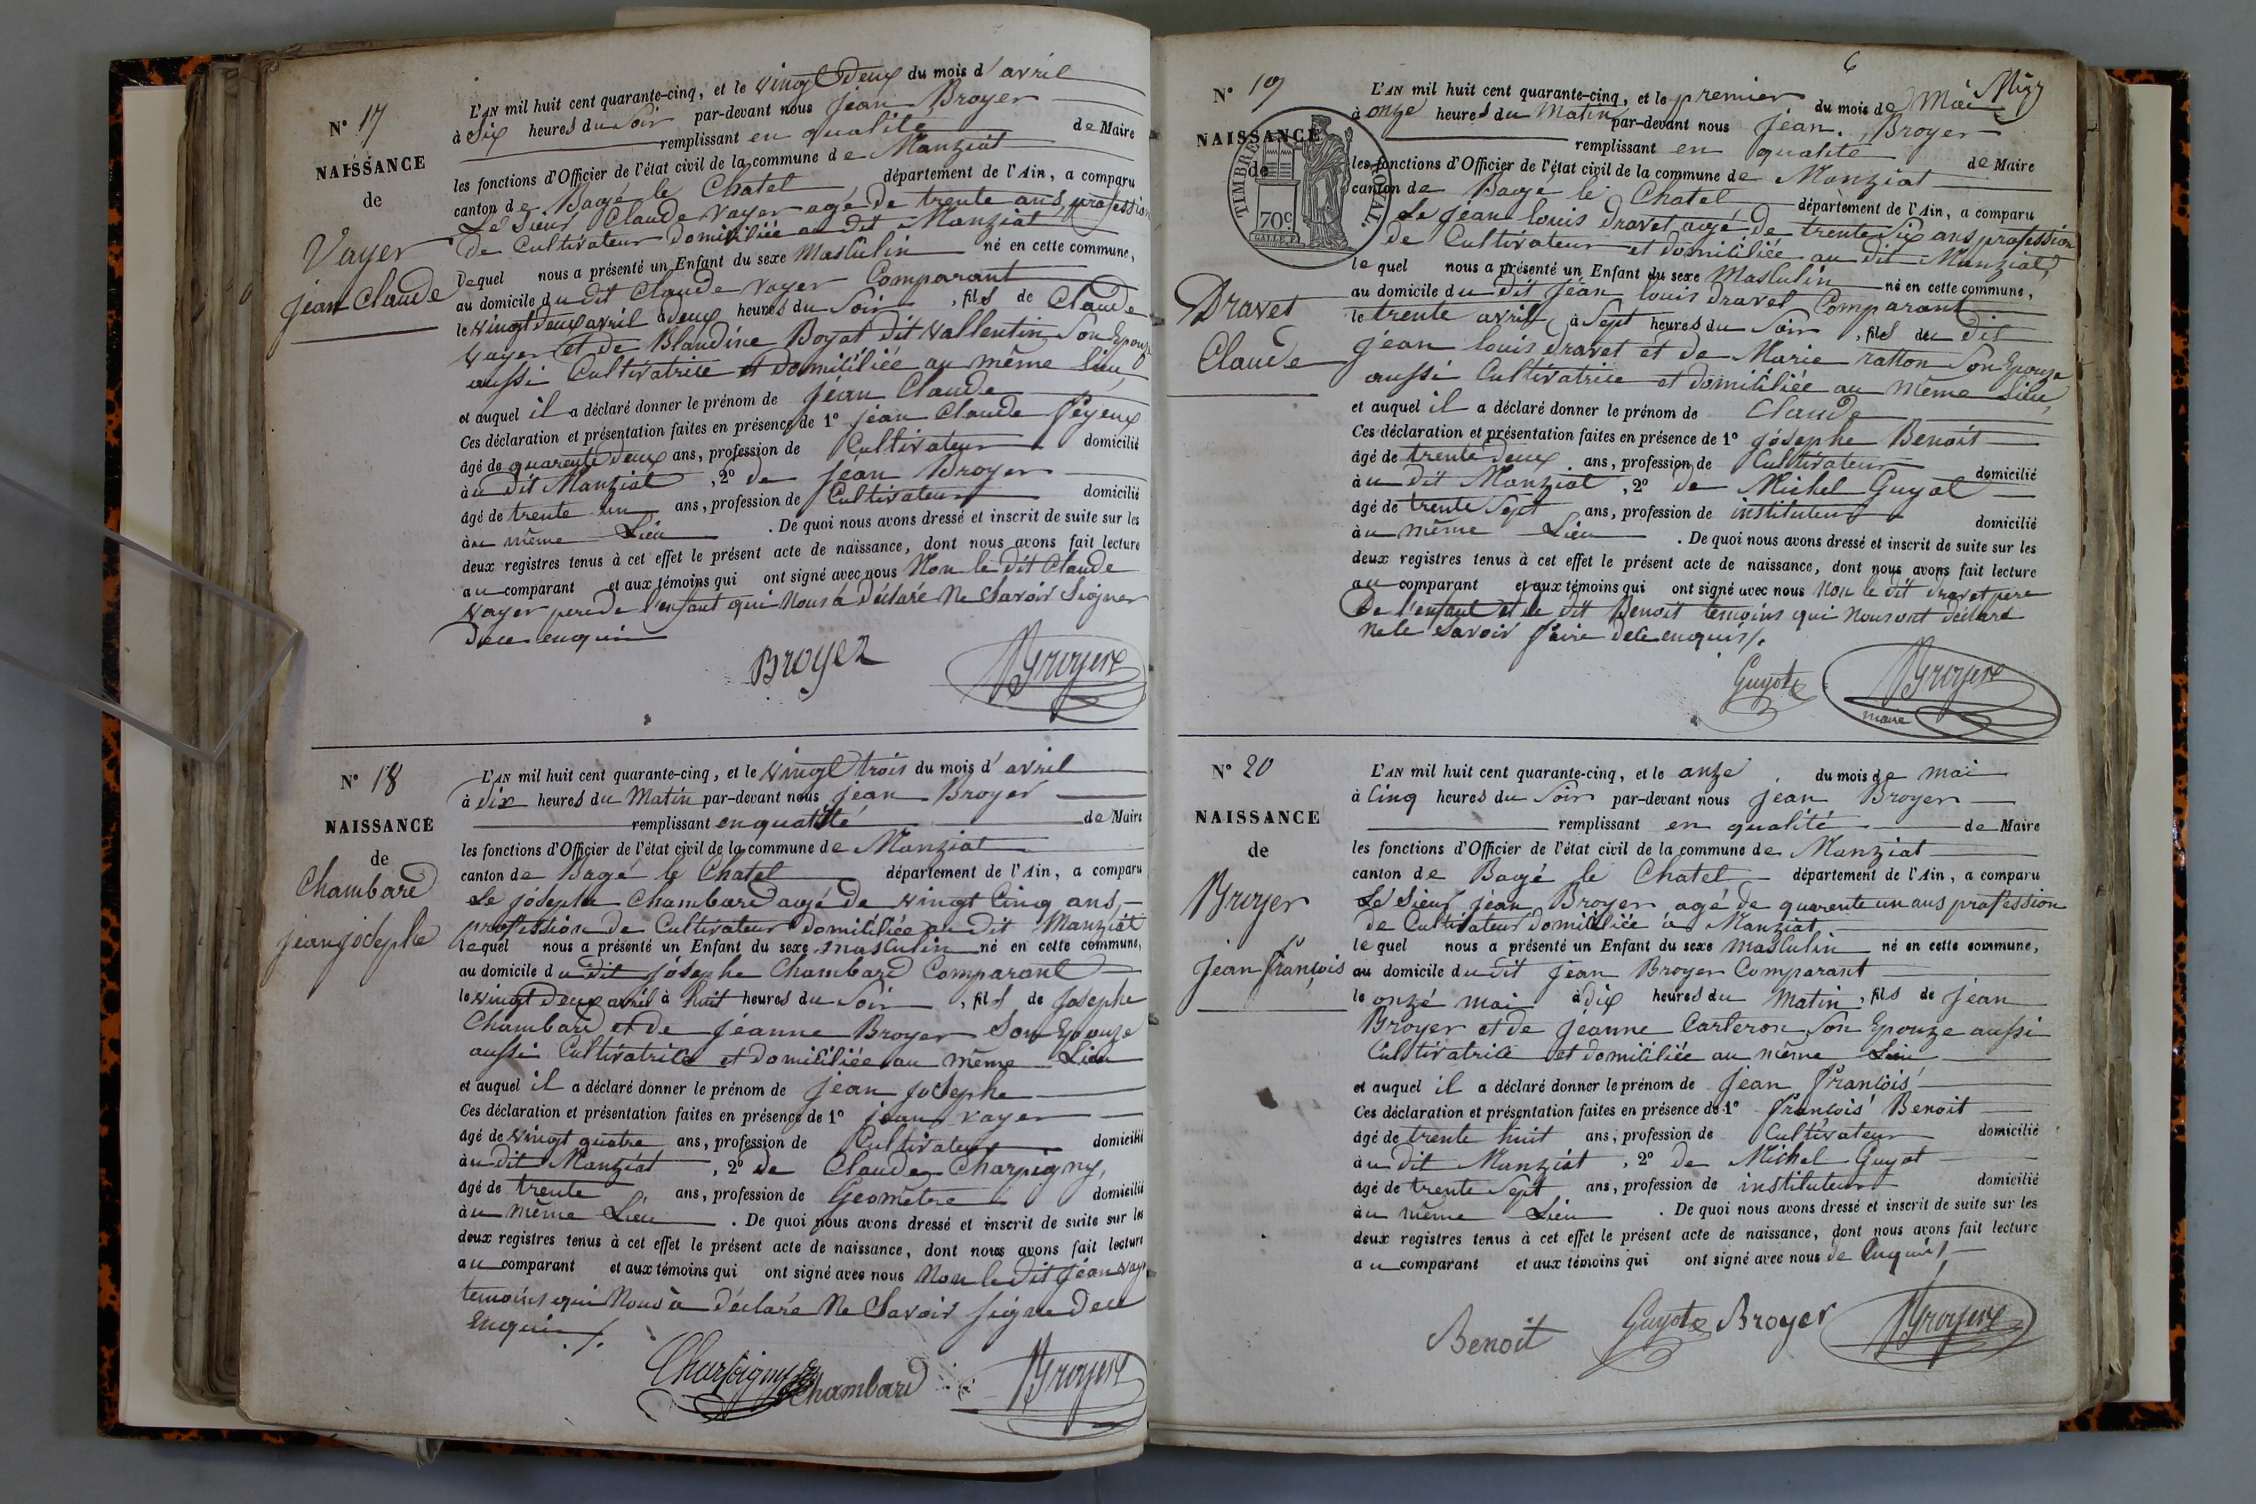 N° 17
NAISSANCE
de
Vayer
jean Claude
L'AN mil huit cent quarante-cinq, et le vingt deux du mois d'avril
à Six heures du Soir par-devant nous Jéan Broyer
remplissant en qualité de Maire
les fonctions d'Officier de l'état civil de la commune de Manziat
canton de Bagé le Chatel département de l'Ain, a comparu
Le Sieur Claude Vayer agé de trente ans, profession
de Cultivateur domiciliée au dit Manziat
Lequel nous a présenté un Enfant du sexe Masculin né en cette commune,
au domicile du dit Claude Vayer Comparant
le vingt deux avril à deux heures du Soir, fils de Claude
Vayer et de Blandine Boyat dit Vallentin Son Epouze
aussi Cultivatrice et domiciliée au même lieu,
et auquel il a déclaré donner le prénom de Jéan Claude
Ces déclaration et présentation faites en présence de 1° jean Claude Péyeux
âgé de quarente deux ans, profession de Cultivateur domicilié
à u dit Manziat, 2° de Jéan Broyer
âgé de trente un ans, profession de Cultivateur domicilié
à u même Lieu. De quoi nous avons dressé et inscrit de suite sur les
deux registres tenus à cet effet le présent acte de naissance, dont nous avons fait lecture
au comparant et aux témoins qui ont signé avec nous Non le dit Claude
Vayer pere de l'enfant qui Nous a déclaré Ne Savoir Signer
dece enquis
Broyer Broyer
N° 18
NAISSANCE
de
Chambard
jean joséphe
L'AN mil huit cent quarante-cinq, et le vingt trois du mois d'avril
à dix heures du Matin par-devant nous Jéan Broyer
remplissant en qualité de Maire
les fonctions d'Officier de l'état civil de la commune de Manziat
canton de Bagé le Chatel département de l'Ain, a comparu
Le joséphe Chambard agé de vingt Cinq ans,
profession de Cultivateur domiciliée au dit Manziat
lequel nous a présenté un Enfant du sexe masculin né en cette commune,
au domicile du dit joséphe Chambard Comparant
le vingt deux avril à huit heures du Soir, fils de Joséphe
Chambard et de Jéanne Broyer Son Epouze
aussi Cultivatrice et domiciliée au même Lieu
et auquel il a déclaré donner le prénom de jéan joséphe
Ces déclaration et présentation faites en présence de 1° jean vayer
âgé de vingt quatre ans, profession de Cultivateur domicilié
à u dit Manziat, 2° de Claude Charpigny,
âgé de trente ans, profession de Géomètre domicilié
à u même Lieu. De quoi nous avons dressé et inscrit de suite sur les
deux registres tenus à cet effet le présent acte de naissance, dont nous avons fait lecture
au comparant et aux témoins qui ont signé avec nous Non le dit Jéan Vayer
temoins qui Nous à déclaré Ne Savoir signe dece
Enquis./.
Charpigny Chambard Broyer
6
N° 19
NAISSANCE
de
TIMBRE ROYAL.
70c
Dravet
Claude
L'AN mil huit cent quarante-cinq, et le premier du mois de Mai
à onze heures du Matin par-devant nous Jéan Broyer
remplissant en qualité de Maire
les fonctions d'Officier de l'état civil de la commune de Manziat
canton de Bagé le Chatel département de l'Ain, a comparu
Le Jéan louis dravet agé de trente Six ans profession
de Cultivateur et domiciliée au dit Manziat,
le quel nous a présenté un Enfant du sexe Masculin né en cette commune,
au domicile du dit Jéan louis dravet Comparant
le trente avril à Sept heures du Soir, fils du dit
jéan louis dravet et de Marie ratton Son Epouze
aussi Cultivatrice et domiciliée au même Lieu,
et auquel il a déclaré donner le prénom de Claude
Ces déclaration et présentation faites en présence de 1° jósephe Benoit
âgé de trente deux ans, profession de Cultivateur domicilié
à u dit Manziat, 2° de Michel Guyot
âgé de trente Sept ans, profession de instituteur domicilié
à u même Lieu. De quoi nous avons dressé et inscrit de suite sur les
deux registres tenus à cet effet le présent acte de naissance, dont nous avons fait lecture
au comparant et aux témoins qui ont signé avec nous Non le dit dravet pere
de l'enfant et le dit Benoit temoins qui Nous ont déclaré
Ne le Savoir faire dece enquis/.
Guyot Broyer
maire
N° 20
NAISSANCE
de
Broyer
Jean françois
L'AN mil huit cent quarante-cinq, et le onze du mois de mai
à Cinq heures du Soir par-devant nous Jean Broyer
remplissant en qualité de Maire
les fonctions d'Officier de l'état civil de la commune de Manziat
canton de Bagé le Chatel département de l'Ain, a comparu
Lé Sieur jéan Broyer agé de quarente un ans profession
de Cultivateur domiciliée à Manziat
le quel nous a présenté un Enfant du sexe masculin né en cette commune,
au domicile du dit Jéan Broyer Comparant
le onzé mai à dix heures du Matin, fils de jéan
Broyer et de Jéanne Carteron Son Epouze aussi
Cultivatrice et domiciliée au même Lieu
et auquel il a déclaré donner le prénom de Jéan François
Ces déclaration et présentation faites en présence de 1° François Benoit
âgé de trente huit ans, profession de Cultivateur domicilié
à u dit Manziat, 2° de Michel Guyot
âgé de trente Sept ans, profession de instituteur domicilié
à u même Lieu. De quoi nous avons dressé et inscrit de suite sur les
deux registres tenus à cet effet le présent acte de naissance, dont nous avons fait lecture
au comparant et aux témoins qui ont signé avec nous de Enquis
Benoit Guyot Broyer Broyer